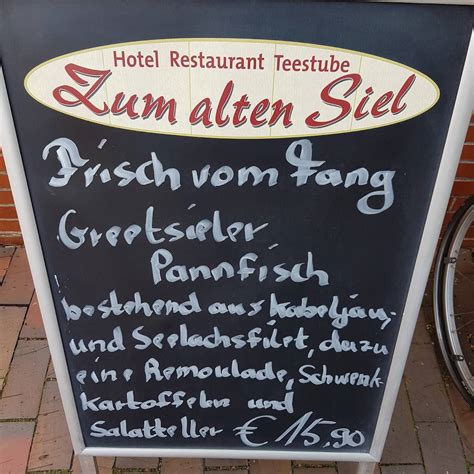 Hotel Restaurant Teestube
Zum alten Siel
Frisch vom Fang
Greetsieler
Pannfisch
bestehend aus Kabeljau,
und Seelachsfilet, dazu
eine Remoulade, Schwenk-
kartoffeln und
Salatteller € 15,90